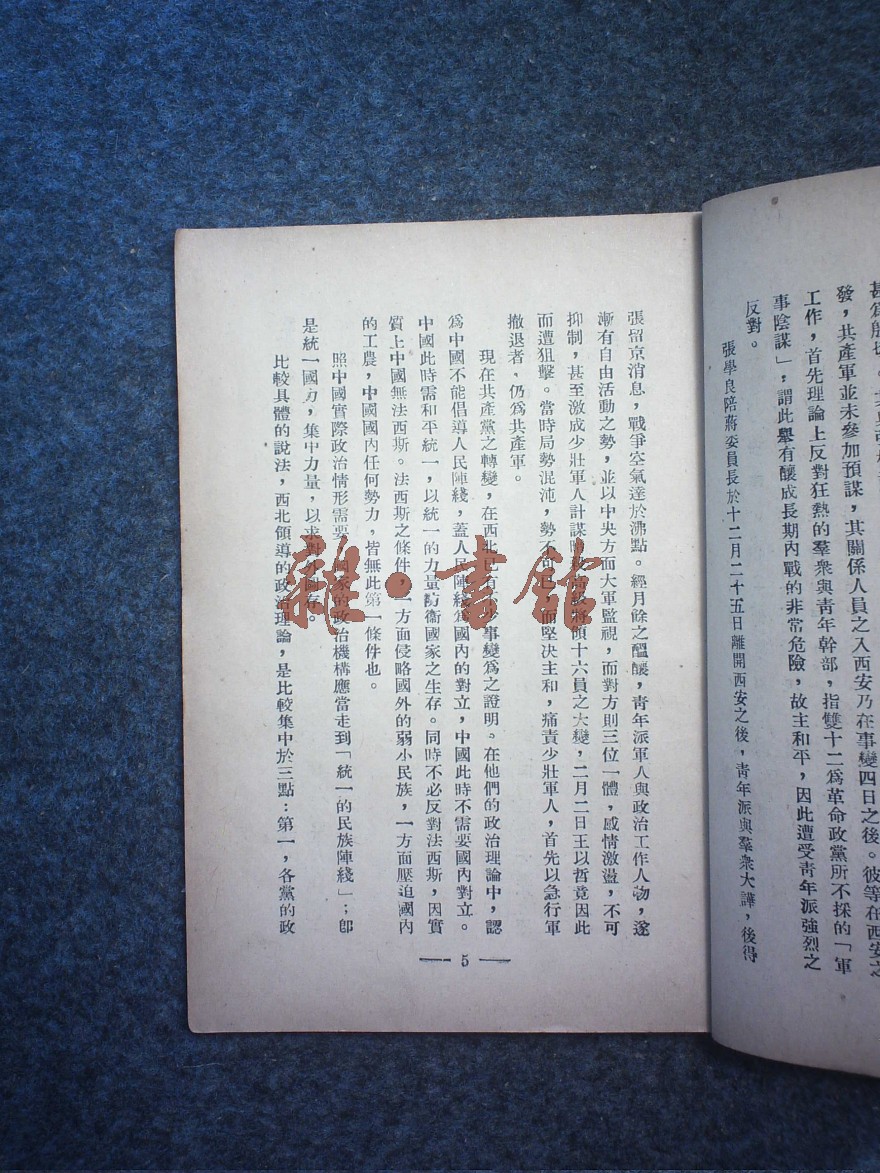 發，共產軍並未參加預謀，其關係人員之入西安乃在事變四日之後。彼等在西安之
工作，首先理論上反對狂熱的羣衆與靑年幹部，指雙十二爲革命政黨所不採的「軍
事陰謀」；謂此舉有釀成長期內戰的非常危險，故主和平，因此遭受靑年派強烈之
反對。
張學良陪蔣委員長於十二月二十五日離開西安之後，靑年派與羣衆大譁，後得
張留京消息，戰爭空氣達於沸點。經月餘之醞釀，靑年派軍人與政治工作人物，遂
漸有自由活動之勢，並以中央方面大軍監視，而對方則三位一體，感情激盪，不可
抑制，甚至激成少壯軍人計謀將領十六員之大變，二月二日王以哲竟因此
而遭狙擊。當時局勢混沌，勢不可而堅决主和，痛責少壯軍人，首先以急行軍
撤退者，仍爲共產軍。
現在共產黨之轉變，在西北已有事變爲之證明。在他們的政治理論中，認
爲中國不能倡導人民陣綫，蓋人民陣綫爲國內的對立，中國此時不需要國內對立。
中國此時需和平統一，以統一的力量防衞國家之生存。同時不必反對法西斯，因實
質上中國無法西斯。法西斯之條件，一方面侵略國外的弱小民族，一方面壓迫國內
的工農，中國國內任何勢力，皆無此第一條件也。
照中國實際政治情形需要，國家的政治機構應當走到「統一的民族陣綫」；卽
是統一國力，集中力量，以求對外圖存。
比較具體的說法，西北領導的政治理論，是比較集中於三點：第一，各黨的政
5
雜·書館